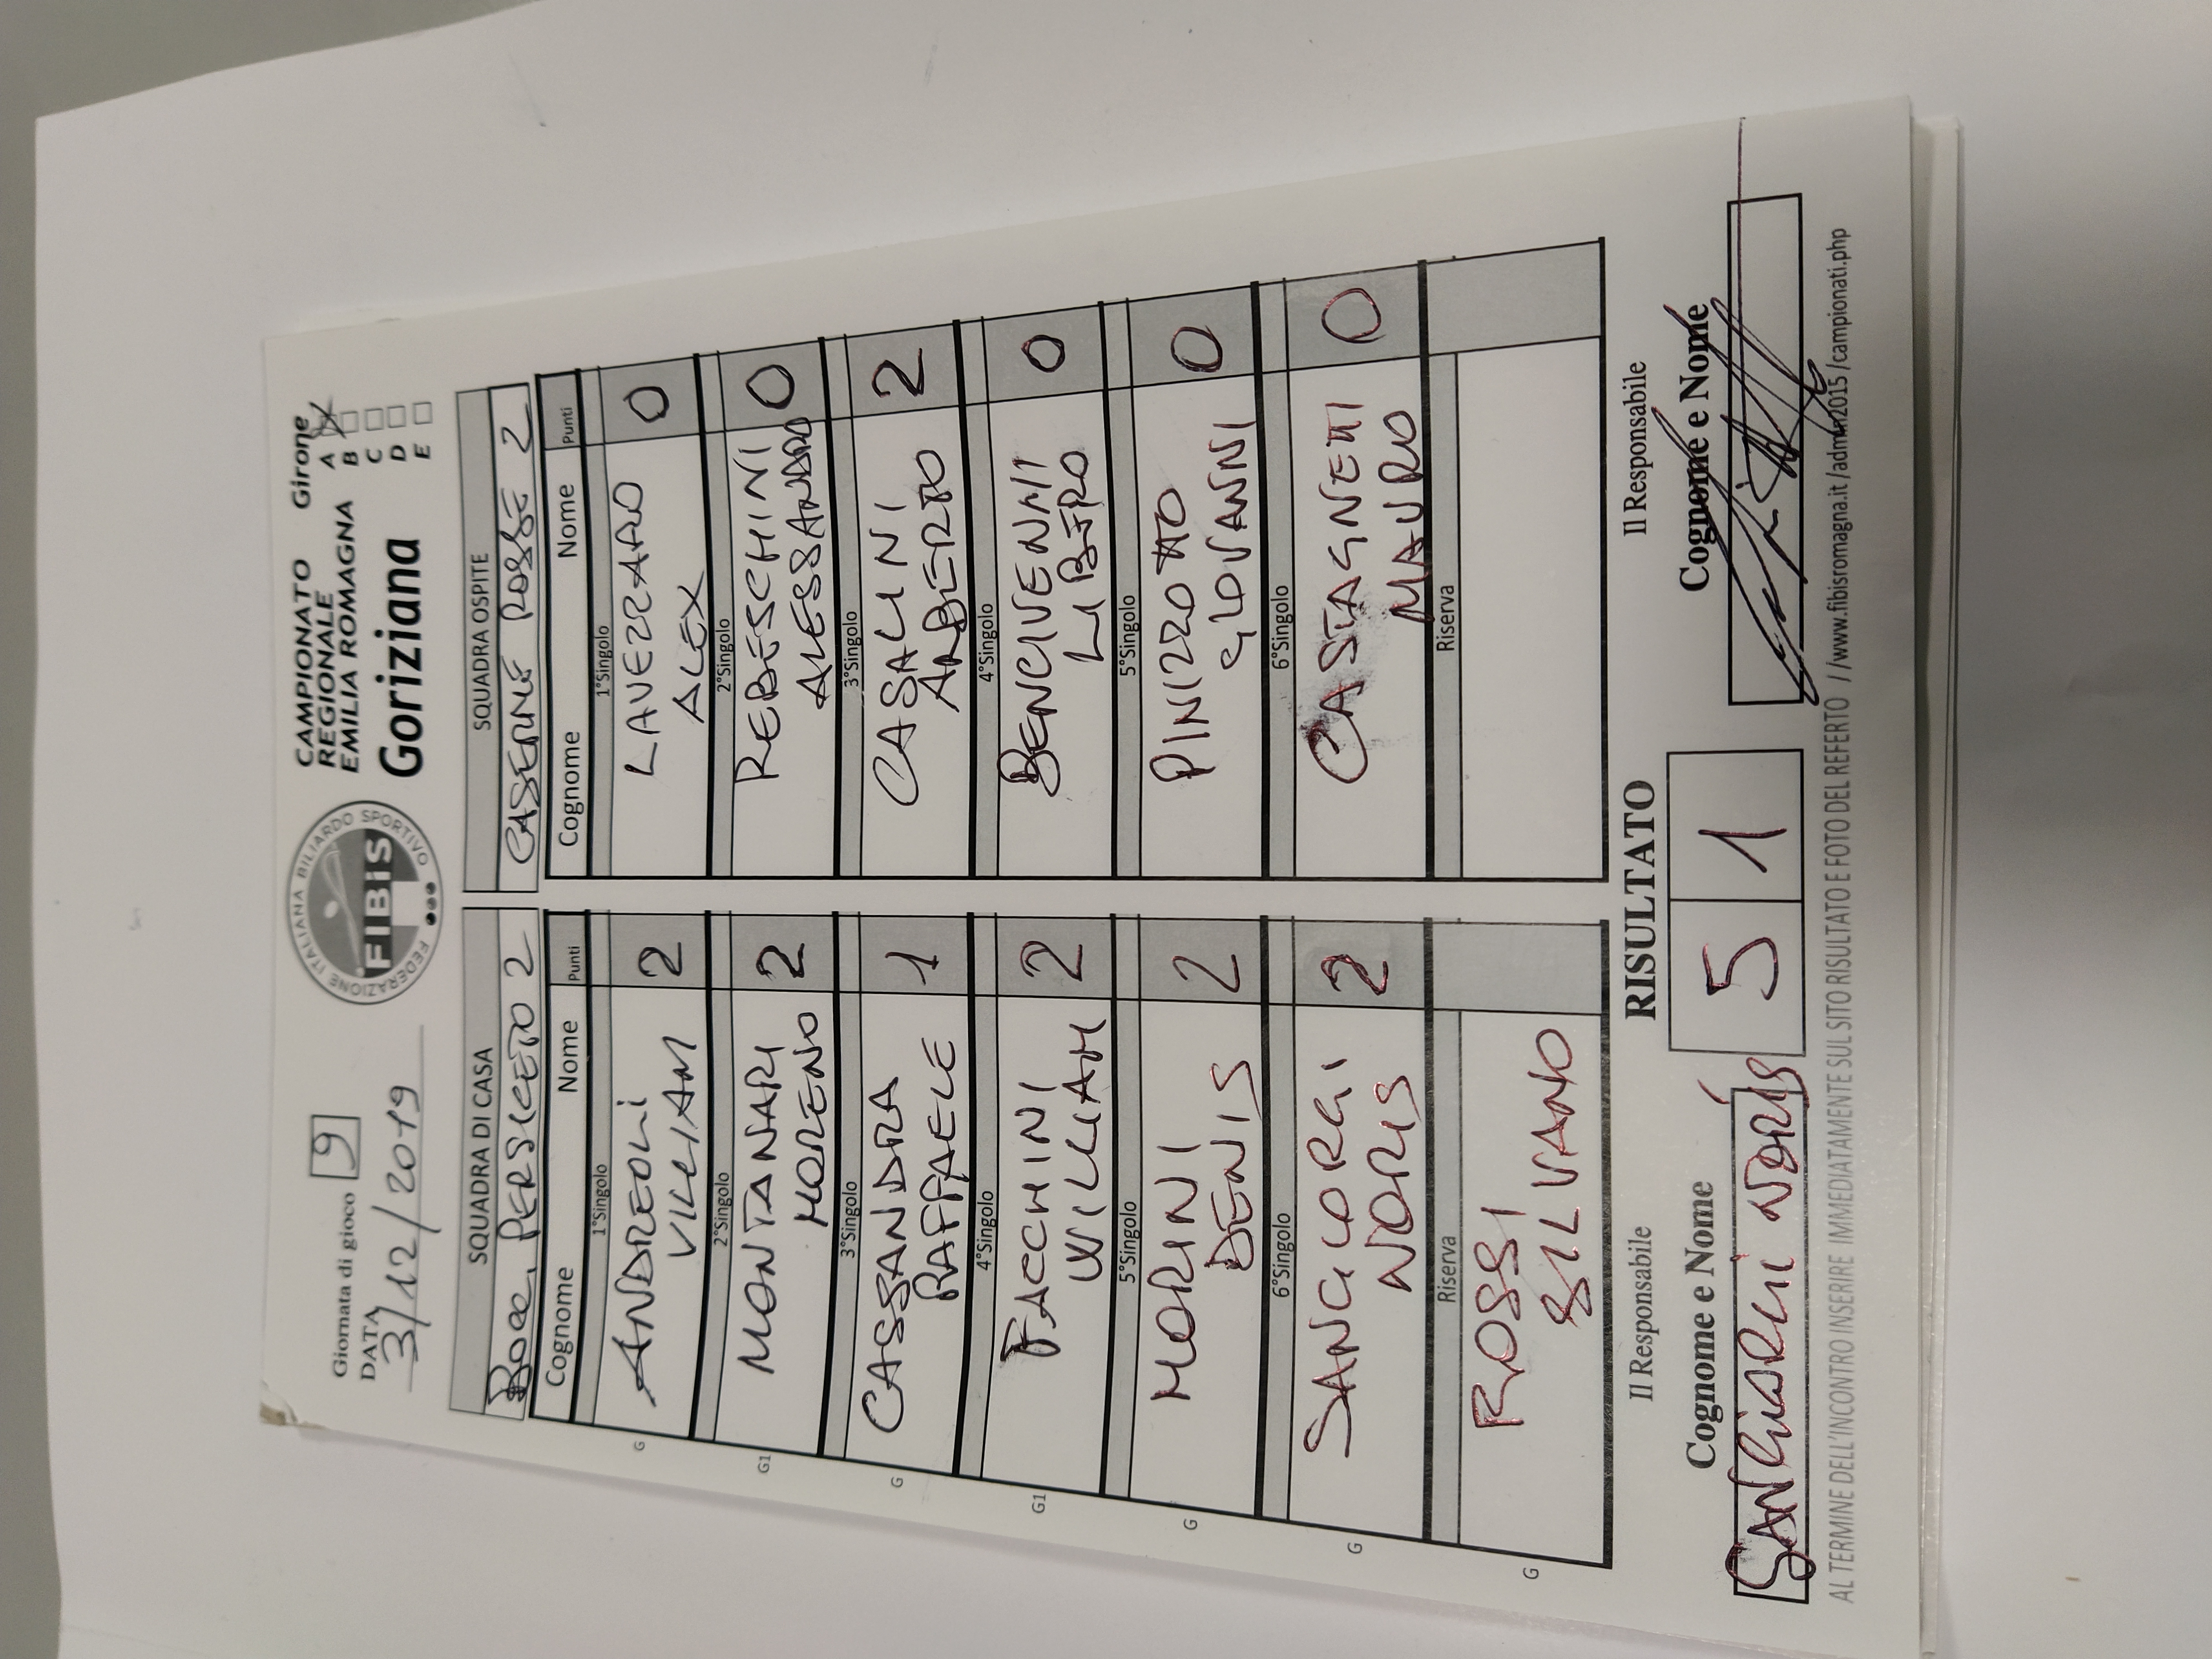 Giornata di gioco 9
DATA
3/12/2019
FEDERAZIONE ITALIANA BILIARDO SPORTIVO
FIBiS
CAMPIONATO
REGIONALE
EMILIA ROMAGNA
Goriziana
Girone
A
B
C
D
E
SQUADRA DI CASA
Bocc. PERSICETO 2
Cognome Nome Punti
1°Singolo
G ANDREOLI
VILLIAM 2
2°Singolo
G1 MONTANARI
MORENO 2
3°Singolo
G CASSANDRA
RAFFAELE 1
4°Singolo
G1 FACCHINI
WILLIAM 2
5°Singolo
G MORINI
DENIS 2
6°Singolo
G SANGIORGI
NORIS 2
Riserva
G ROSSI
SILVANO
SQUADRA OSPITE
CASERME ROSSE 2
Cognome Nome Punti
1°Singolo
LAVEZZARO
ALEX 0
2°Singolo
REBESCHINI
ALESSANDRO 0
3°Singolo
CASALINI
ALBERTO 2
4°Singolo
BENCIVENNI
LIBERO 0
5°Singolo
PINIZZOTTO
GIOVANNI 0
6°Singolo
CASTAGNETTI
MAURO 0
Riserva
Il Responsabile
RISULTATO
Il Responsabile
Cognome e Nome
Cognome e Nome
SANGIORGI NORIS
5 1
AL TERMINE DELL'INCONTRO INSERIRE IMMEDIATAMENTE SUL SITO RISULTATO E FOTO DEL REFERTO //www.fibisromagna.it/admin2015/campionati.php